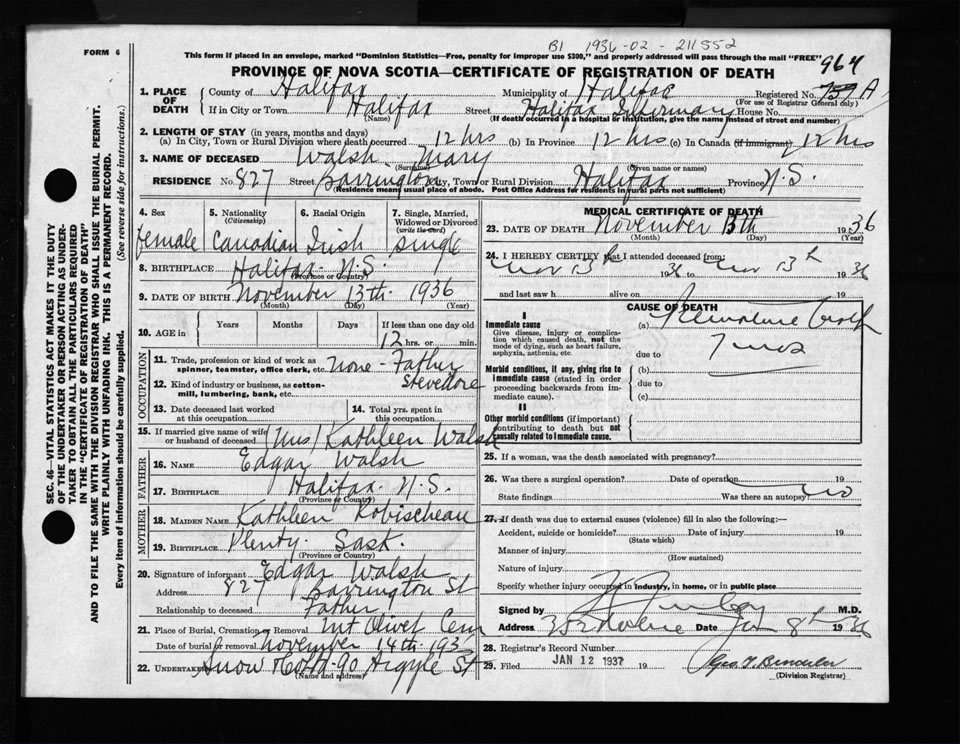 B1 1936-02-211552
FORM 6
This form if placed in an envelope, marked "Dominion Statistics—Free, penalty for improper use $300," and properly addressed will pass through the mail "FREE"
964
PROVINCE OF NOVA SCOTIA—CERTIFICATE OF REGISTRATION OF DEATH
1. PLACE OF DEATH County of Halifax Municipality of Halifax Registered No. 759 A
(For use of Registrar General only)
If in City or Town Halifax Street Halifax Infirmary House No.
(Name) (If death occurred in a hospital or institution, give the name instead of street and number)
2. LENGTH OF STAY (in years, months and days)
(a) In City, Town or Rural Division where death occurred 12 hrs (b) In Province 12 hrs (c) In Canada (if immigrant) 12 hrs
3. NAME OF DECEASED Walsh, Mary
(Surname) (Given name or names)
RESIDENCE No. 827 Street Barrington City, Town or Rural Division Halifax Province N.S.
(Residence means usual place of abode. Post Office Address for residents in rural parts not sufficient)
4. Sex 5. Nationality 6. Racial Origin 7. Single, Married,
(Citizenship) Widowed or Divorced
(write the word)
female Canadian Irish single
8. BIRTHPLACE Halifax N.S.
(Province or Country)
9. DATE OF BIRTH November 13th 1936
(Month) (Day) (Year)
10. AGE in Years Months Days If less than one day old
12 hrs. or min.
OCCUPATION
11. Trade, profession or kind of work as
spinner, teamster, office clerk, etc. none - Father
Stevedore
12. Kind of industry or business, as cotton-
mill, lumbering, bank, etc.
13. Date deceased last worked
at this occupation
14. Total yrs. spent in
this occupation
15. If married give name of wife
or husband of deceased (Mrs) Kathleen Walsh
FATHER
16. NAME Edgar Walsh
17. BIRTHPLACE Halifax N.S.
(Province or Country)
MOTHER
18. MAIDEN NAME Kathleen Robischeau
19. BIRTHPLACE Plenty Sask.
(Province or Country)
20. Signature of informant Edgar Walsh
Address 827 Barrington St
Relationship to deceased Father
21. Place of Burial, Cremation or Removal Mt Olivet Cem
Date of burial or removal November 14th 1936
22. UNDERTAKER Snow & Co Ltd - 90 Argyle St
(Name and address)
MEDICAL CERTIFICATE OF DEATH
23. DATE OF DEATH November 13th 1936
(Month) (Day) (Year)
24. I HEREBY CERTIFY that I attended deceased from:
Nov 13th 1936 to Nov 13th 1936
and last saw h alive on 19
CAUSE OF DEATH
I
Immediate cause (a) Premature birth
Give disease, injury or complica-
tion which caused death, not the
mode of dying, such as heart failure,
asphyxia, asthenia, etc.
due to 7 mos
Morbid conditions, if any, giving rise to
immediate cause (stated in order
proceeding backwards from im-
mediate cause).
(b)
due to
(c)
II
Other morbid conditions (if important)
contributing to death but not
causally related to immediate cause.
25. If a woman, was the death associated with pregnancy?
26. Was there a surgical operation? Date of operation
State findings Was there an autopsy? no
27. If death was due to external causes (violence) fill in also the following:—
Accident, suicide or homicide? Date of injury 19
(State which)
Manner of injury
(How sustained)
Nature of injury
Specify whether injury occurred in industry, in home, or in public place
Signed by M.D.
Address Date Jan 8th 1936
28. Registrar's Record Number
29. Filed JAN 12 1937 19
(Division Registrar)
SEC. 46—VITAL STATISTICS ACT MAKES IT THE DUTY
OF THE UNDERTAKER OR PERSON ACTING AS UNDER-
TAKER TO OBTAIN ALL THE PARTICULARS REQUIRED
IN THE "CERTIFICATE OF REGISTRATION OF DEATH"
AND TO FILE THE SAME WITH THE DIVISION REGISTRAR WHO SHALL ISSUE THE BURIAL PERMIT.
WRITE PLAINLY WITH UNFADING INK. THIS IS A PERMANENT RECORD.
Every item of information should be carefully supplied. (See reverse side for instructions.)